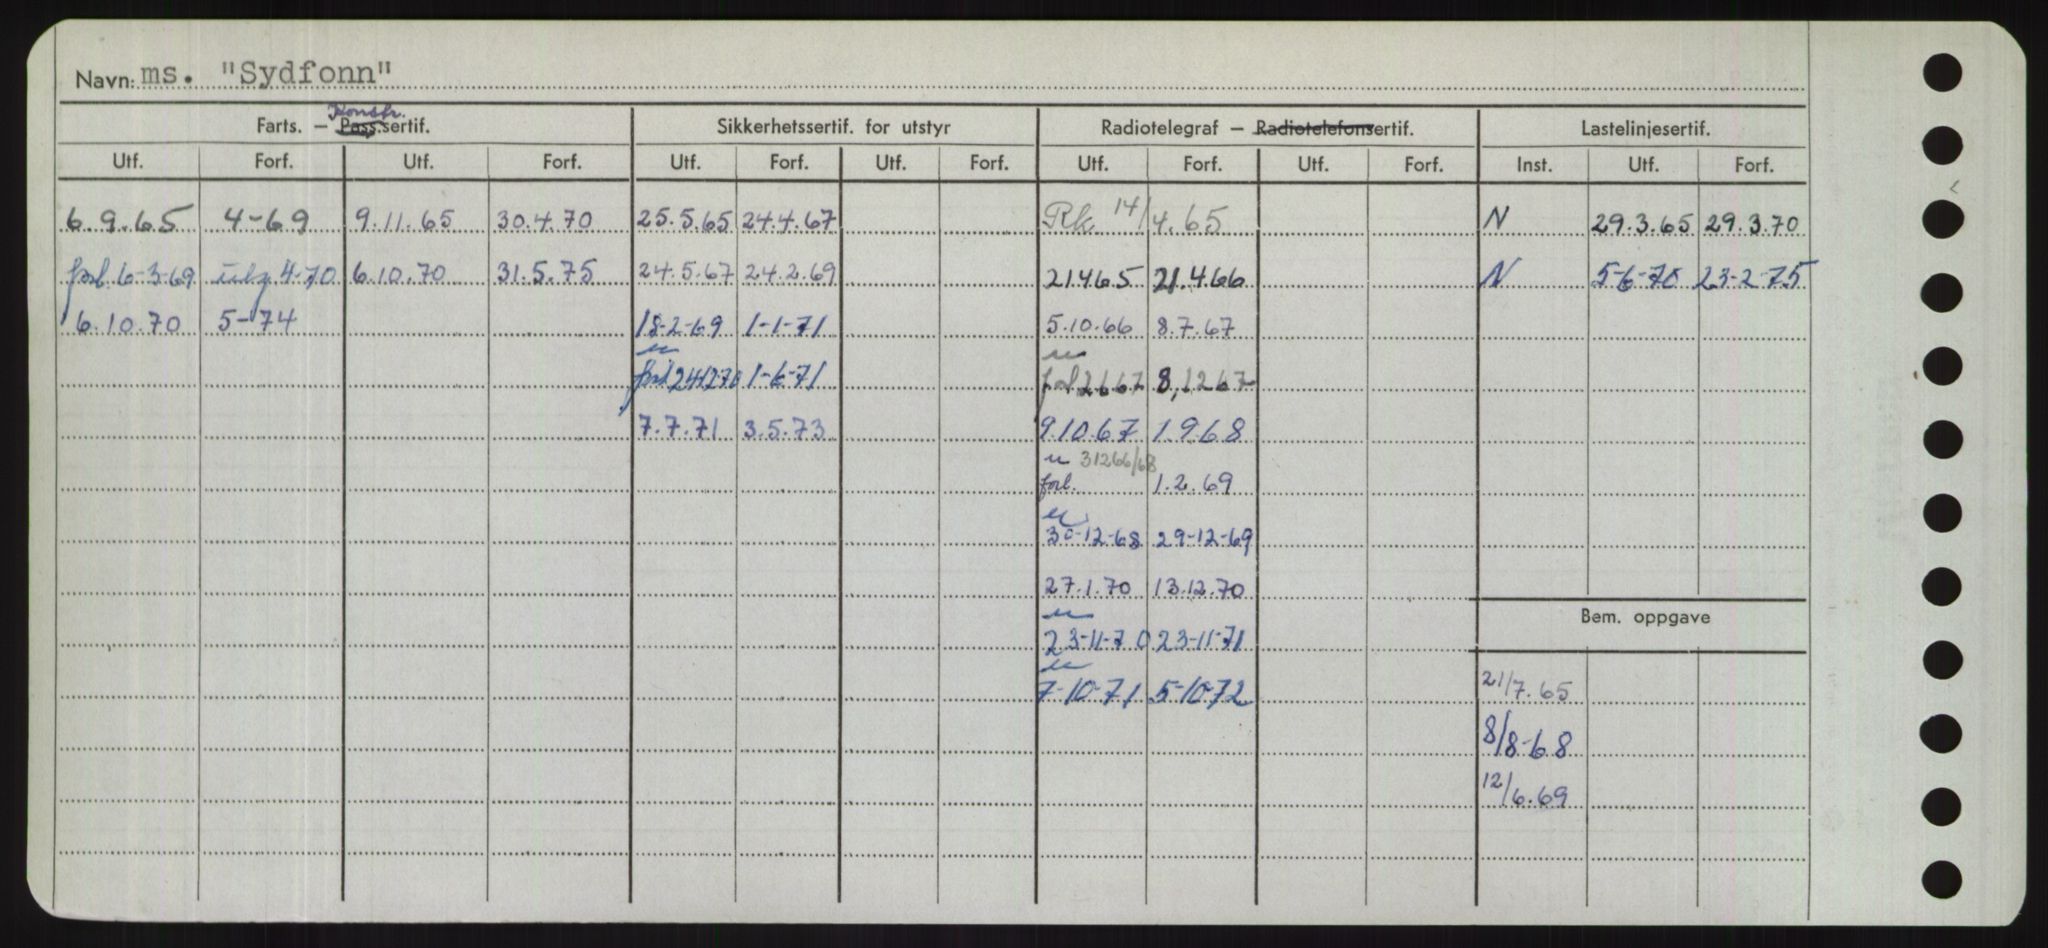 Navn: ms. "Sydfonn"
Konstr.
Farts. – Pass.sertif. Sikkerhetssertif. for utstyr Radiotelegraf – Radiotelefonsertif. Lastelinjesertif.
Utf. Forf. Utf. Forf. Utf. Forf. Utf. Forf. Utf. Forf. Utf. Forf. Inst. Utf. Forf.
6.9.65 4-69 9.11.65 30.4.70 25.5.65 24.4.67 Rk 14/4.65 N 29.3.65 29.3.70
forl 6-3-69 4-70 6.10.70 31.5.75 24.5.67 24.2.69 21465 21.4.66 N 5-6-70 23-2-75
6.10.70 5-74 18-2-69 1-1-71 5.10.66 8.7.67
u u
forl 241270 1-6-71 forl 2667 8,1267
7.7.71 3.5.73 9.10.67 1.9.68
u 31266/68
forl. 1.2.69
u
30-12-68 29-12-69
27.1.70 13.12.70
u
Bem. oppgave
23-11-70 23-11-71
u
7-10-71 5-10-72 21/7.65
8/8-68
12/6.69